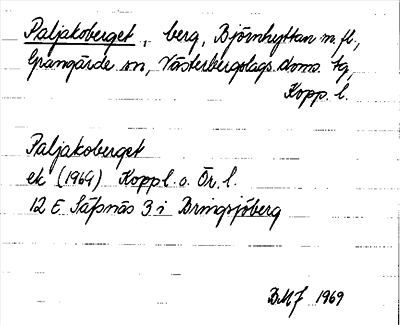 Paljakoberget, berg, Björnhyttan m.fl.,
Grangärde sn, Västerbergslags doms. tg,
Kopp. l.
Paljakoberget
ek (1969) Koppl. o. Ör. l.
12 E Säfsnäs 3 i Bringsjöberg
BMJ 1969